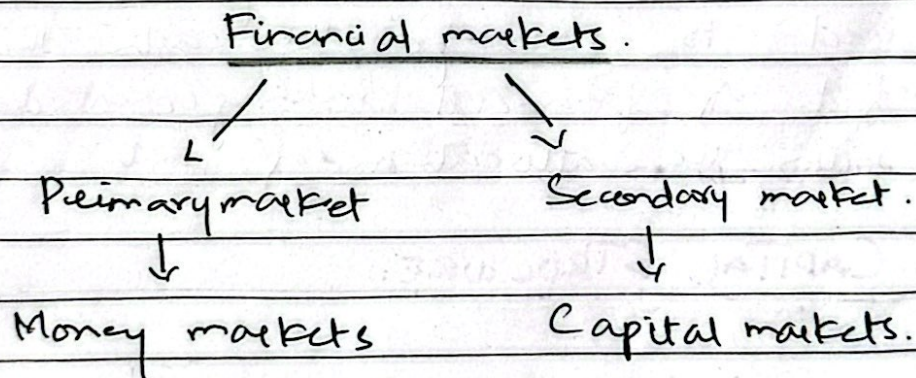 Financial markets.
Primary market Secondary market.
Money markets Capital markets.